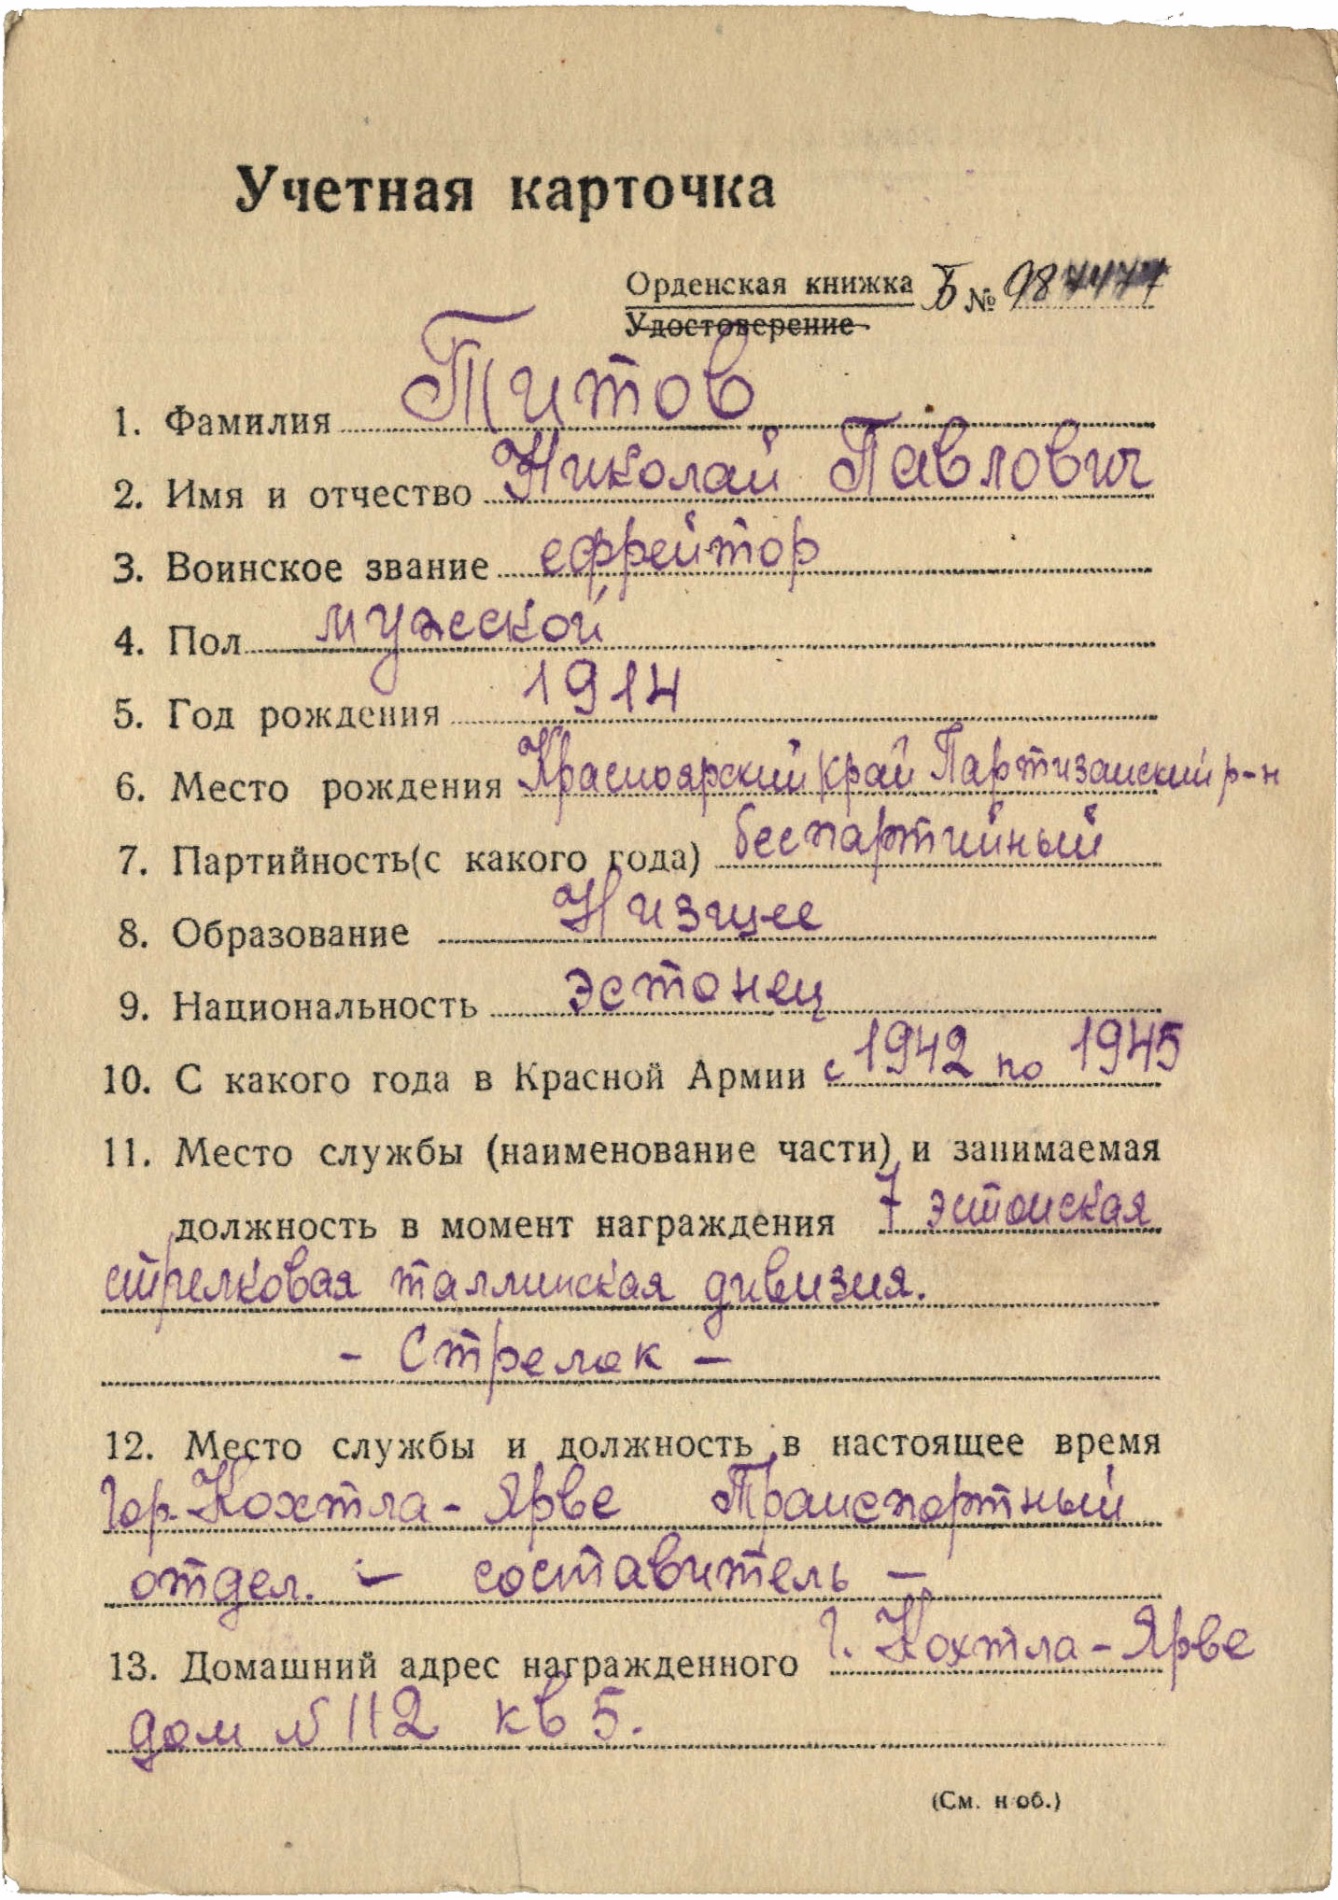 Учетная карточка
Орденская книжка Б № 987477
Удостоверение
1. Фамилия Титов
2. Имя и отчество Николай Павлович
3. Воинское звание ефрейтор
4. Пол мужской
5. Год рождения 1914
6. Место рождения Красноярский край Партизанский р-н
7. Партийность(с какого года) беспартийный
8. Образование Низшее
9. Национальность эстонец
10. С какого года в Красной Армии с 1942 по 1945
11. Место службы (наименование части) и занимаемая
должность в момент награждения 7 эстонская
стрелковая таллинская дивизия.
- Стрелок -
12. Место службы и должность в настоящее время
Гор. Кохтла-Ярве Транспортный
отдел. - составитель -
13. Домашний адрес награжденного г. Кохтла-Ярве
дом № 112 кв 5.
(См. н об.)